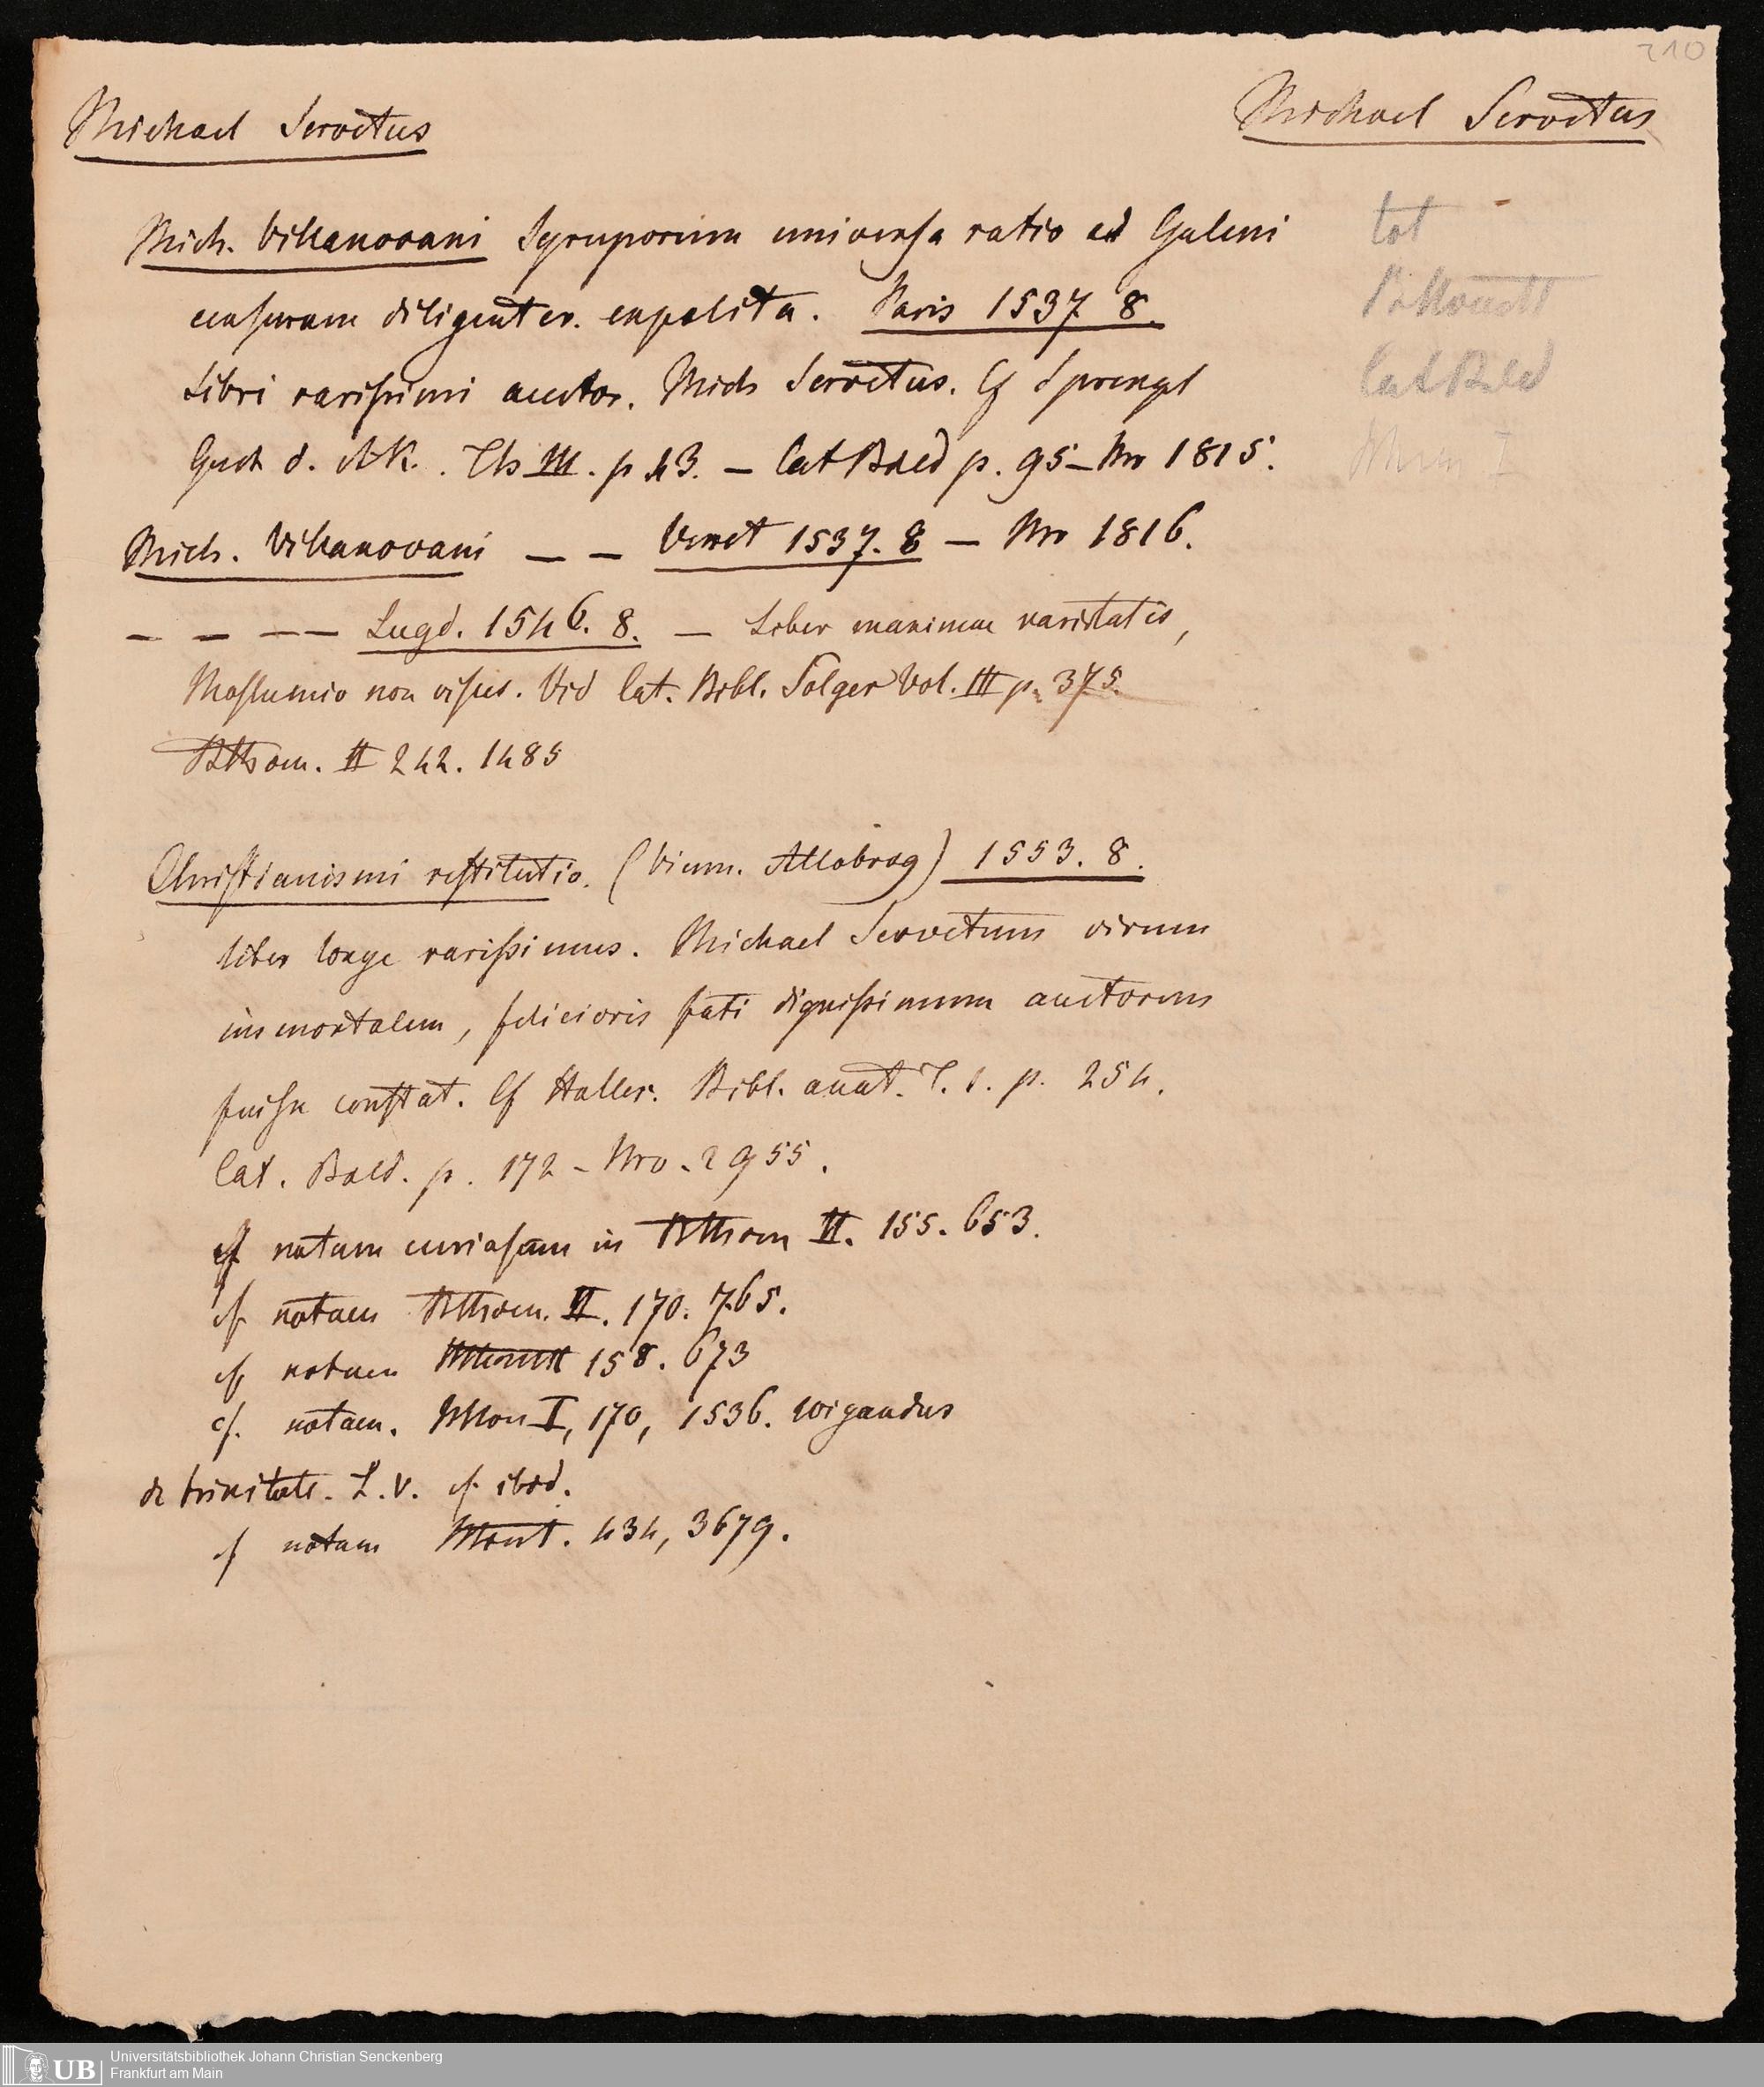 210
Michael Servetus
Michael Servetus
Mich. Villanovani Syruporum universa ratio ad Galeni
censuram diligenter. expolita. Paris 1537 8.
Libri rarissimi auctor. Mich Servetus. Cf Sprengel
Gesch d. AK. Th III. p 43. – Cat Bald p. 95 – Nro 1815.
Mich. Villanovani – – Venet 1537. 8 – Nro 1816.
– – – – Lugd. 1546. 8. – Liber maximae raritatis,
non visus. Vid Cat. Bibl. Solger Vol. III p. 375.
Bthom. II 242. 1485
Christianismi restitutio. (Vienn. Allobrog) 1553. 8.
liber longe rarissimus. Michael Servetum virum
immortalem, felicioris fati dignissimum auctorem
fuisse constat. Cf Haller. Bibl. anat. T. 1. p. 254.
Cat. Bald. p. 172 – Nro. 2955.
cf notam curiosam in Bthom II. 155. 653.
cf notam Bthom. II. 170. 765.
cf notam 158. 673
cf. notam. I, 170, 1536. Wigandus
de trinitate. L. V. cf ibid.
cf notam Mont. 434, 3679.
tot
Cat Bald
I
UB
Universitätsbibliothek Johann Christian Senckenberg
Frankfurt am Main